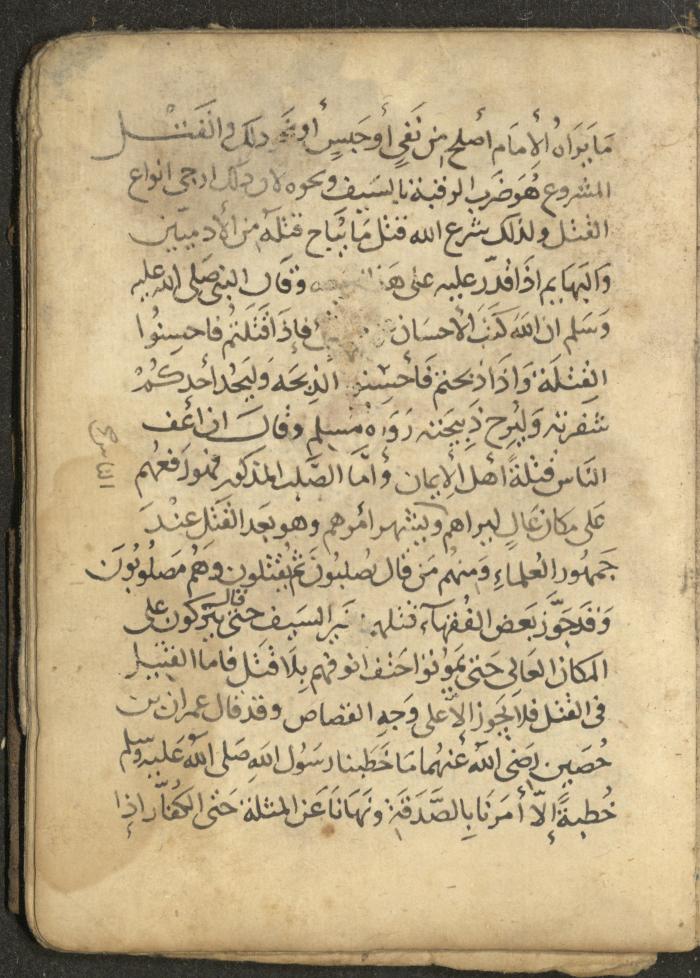 مَا يَرَاهُ الإِمَام أصلح مِن نَفيٍ أَو حَبسٍ أو نحو ذلك والقَتـل
المشروع هُوَ ضَرب الرقبة بالسيف ونحوه لان ذلك ارجى انواع
القتل ولذلك شرع الله قتل مَا يُباح قتله من الأدميّين
وَالبهايم اذا قدّر عليه على هذا الوجه وقال النبي صَلى الله عليه
وَسَلم ان الله كتَبَ الأحسَان فَإِذَا قَتَلتُم فاحسِنُوا
القتلَة وَاذَا ذبحتم فَأحسِنُوا الذبحَة وَليَحُد أحدكمْ
شفرته وَليُرِح ذَبِيحَته رَوَاهُ مُسلِم وقال ان أعف
الناس قتلةً اهل الأيمان وأمّا الصَّلب المذكور فهو رَفعهُم
عَلى مكانٍ عَالٍ ليراهم ويشتهر امرُهم وهو بَعد القتل عندَ
جَمهُور العُلماءِ وَمنهُم مَن قال يُصلبُون ثم يُقتلون وَهُم مَصلُوبُونَ
وَقد جَوَّز بَعض الفُقهآء قتلهم بغير السيف حتى قال يتركون على
المكان العَالى حَتى يَمُوتوا حتف انوفهم بِلَا قتَل فاما التمثيل
فى القتل فلا يَجوز الأ على وَجهِ القصَاص وقد قال عمران بن
حُصَين رَضي الله عَنهُما مَا خَطبنا رَسُول الله صَلى الله عَليه وسَلم
خُطبةً إِلّا أمَرَنَا بِالصَّدَقَةِ ونَهَانَا عَن المثلة حَتى الكفّار اذا